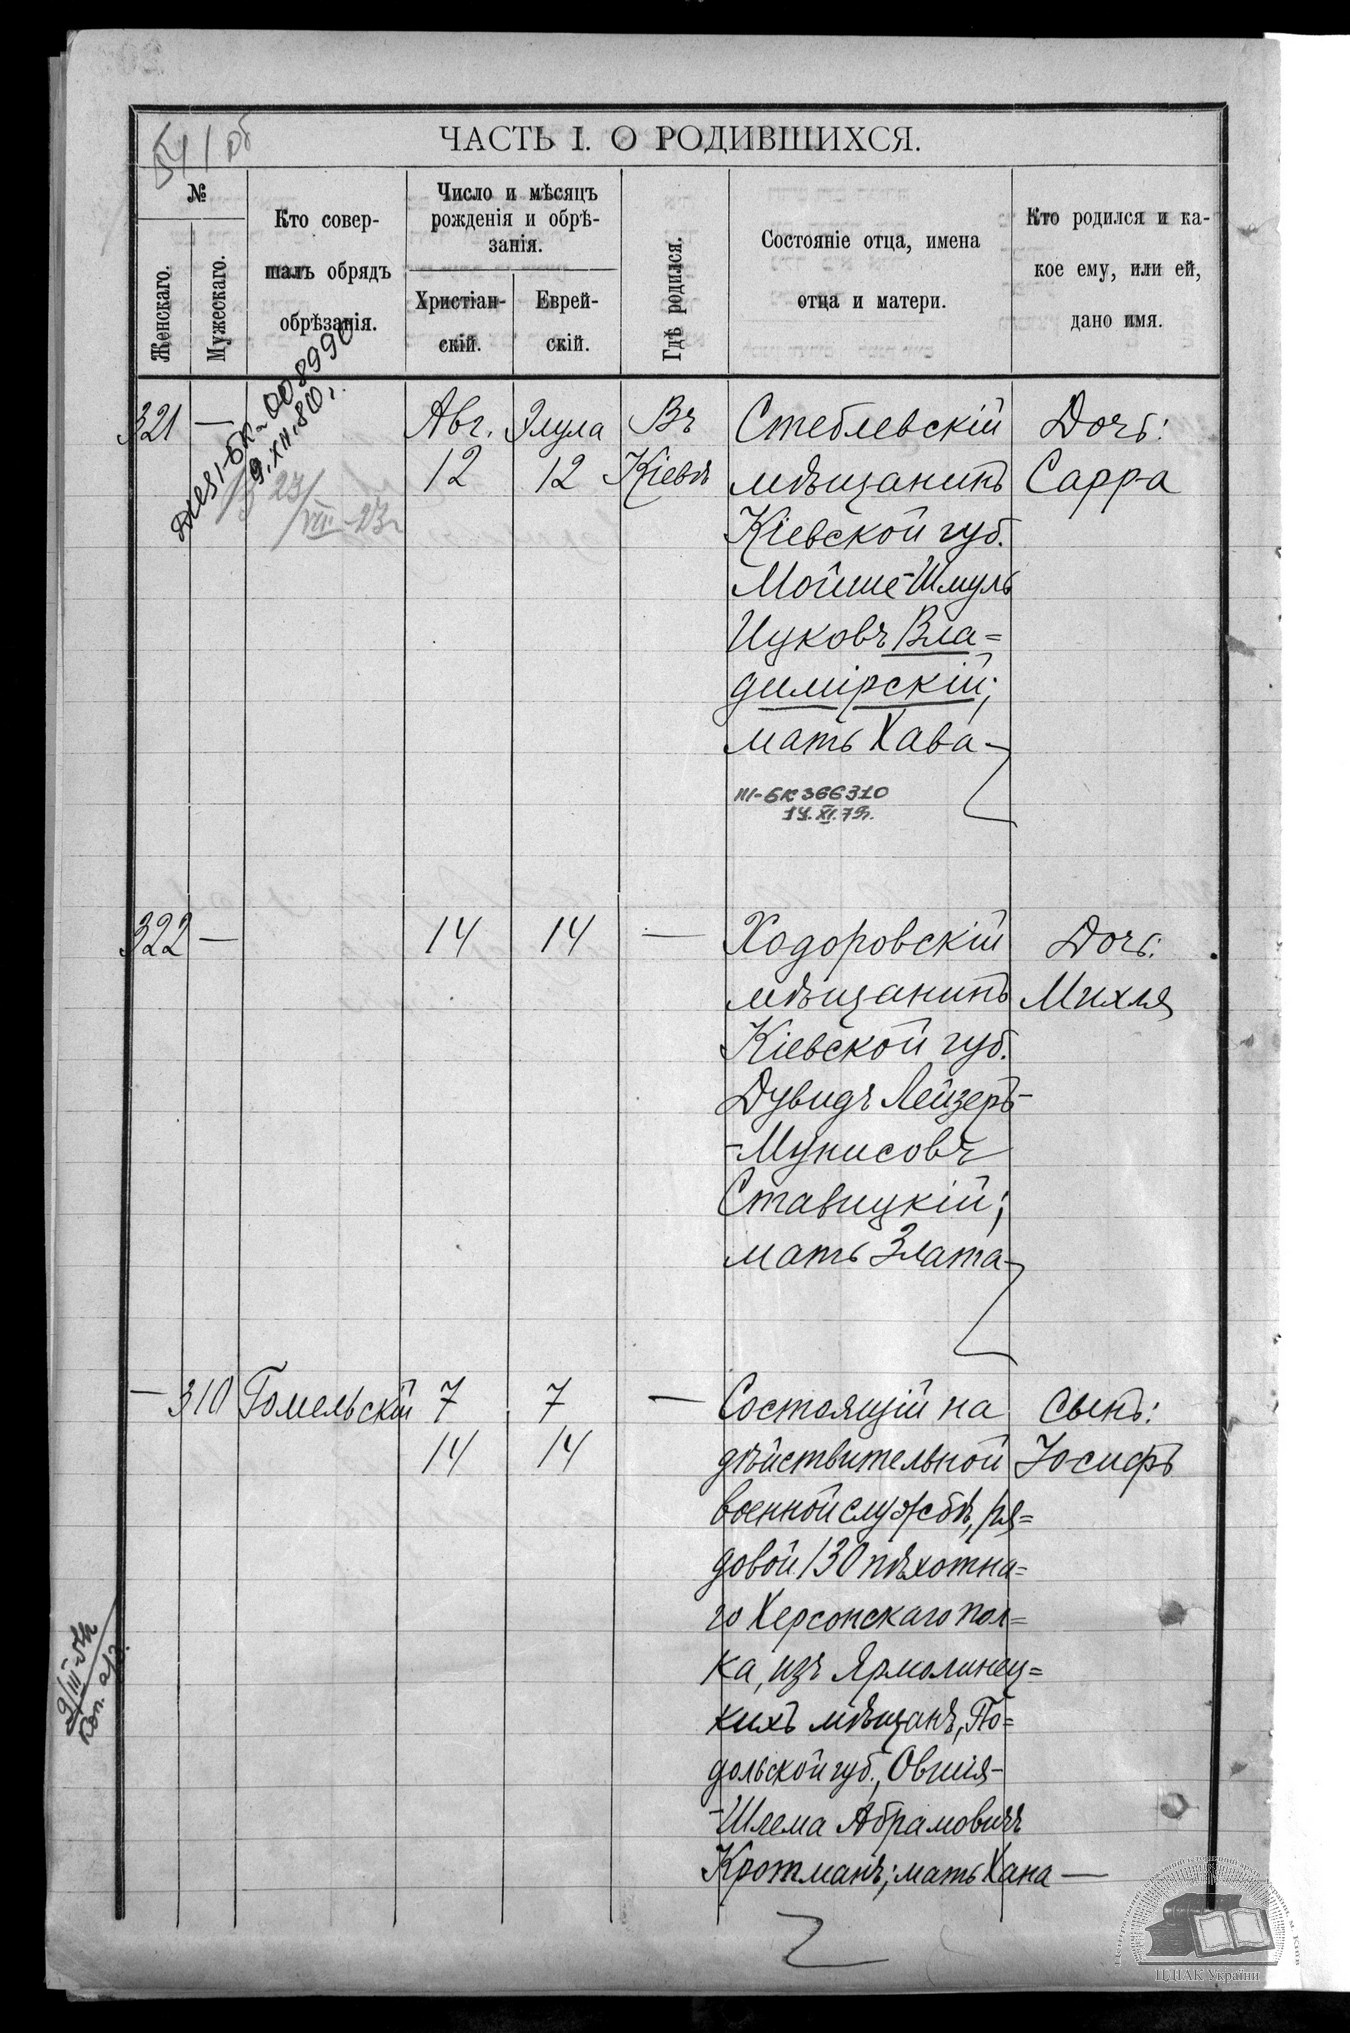 ЧАСТЬ I. О РОДИВШИХСЯ.
№
Женскаго.
Мужескаго.
Кто совер-
шалъ обрядъ
обрѣзанія.
Число и мѣсяцъ
рожденія и обрѣ-
занія.
Христіан-
скій.
Еврей-
скій.
Гдѣ родился.
Состояніе отца, имена
отца и матери.
Кто родился и ка-
кое ему, или ей,
дано имя.
321 —
Авг.
12
Элула
12
Въ
Кіевѣ
Стеблевскій
мѣщанинъ
Кіевской губ.
Мойше-Шмуль
Ицковъ Вла=
димірскій;
мать Хава
Дочь:
Сарра
III-БК 366310
322 —
14
14
—
Ходоровскій
мѣщанинъ
Кіевской губ.
Дувидъ Лейзеръ-
-Мунисовъ
Ставицкій;
мать Злата
Дочь:
Михля
— 310
Гомельскій
7
14
7
14
—
Состоящій на
дѣйствительной
военной службѣ, ря=
довой 130 пѣхотна=
го Херсонскаго пол=
ка, изъ Ярмолинец=
кихъ мѣщанъ, По=
дольской губ., Овшія-
-Шлема Абрамовичъ
Кротманъ; мать Хана —
сынъ:
Іосифъ
ЦДІАК України